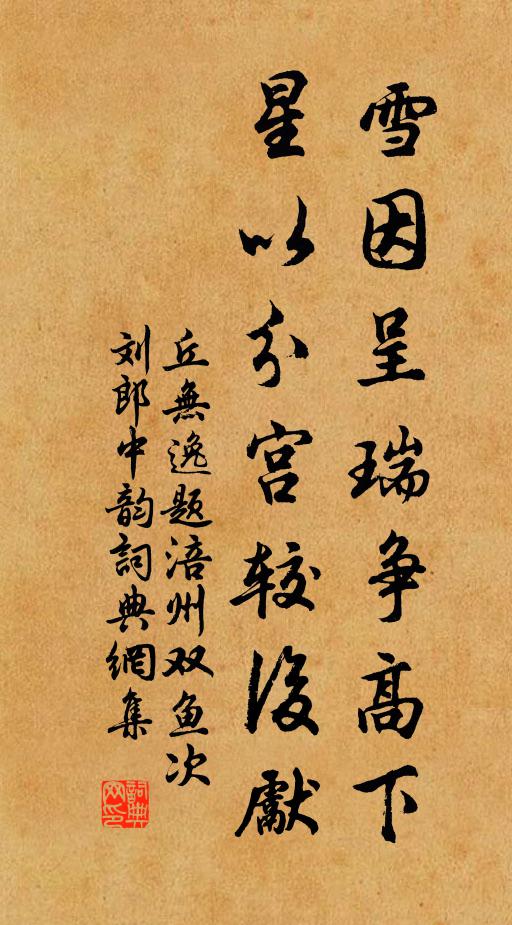 雪因呈瑞争高下
星以分宫较後獻
丘無逸题涪州双鱼次
刘郎中韵詞典網集
詞典网印